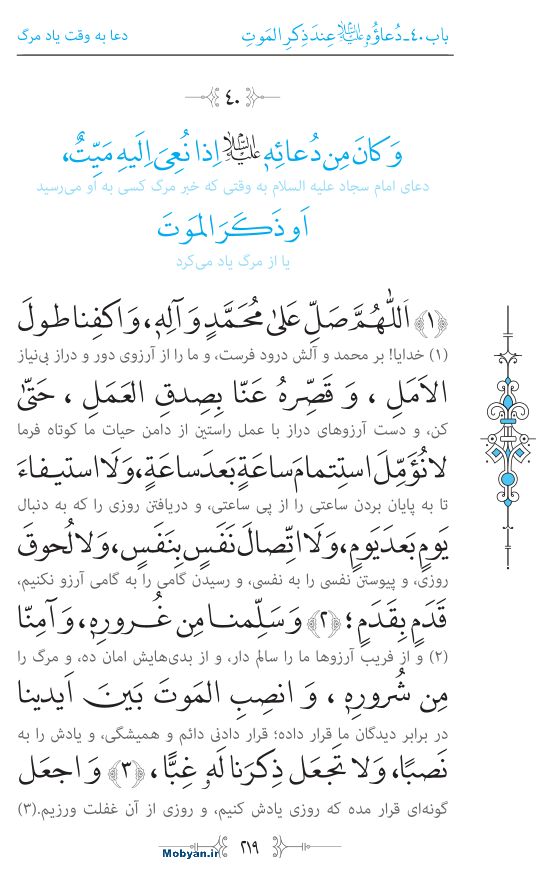 باب ۴۰ـ دُعاؤُهُ عَلَیهِ‌السَّلامُ عِندَ ذِکرِ المَوتِ
دعا به وقت یاد مرگ
۴۰
وَ کانَ مِن دُعائِهِ عَلَیهِ‌السَّلامُ اِذا نُعِیَ اِلَیهِ مَیِّتٌ،
دعای امام سجاد علیه السلام به وقتی که خبر مرگ کسی به او می‌رسید
اَو ذَکَرَ المَوتَ
یا از مرگ یاد می‌کرد
﴿۱﴾ اَللّٰهُمَّ صَلِّ عَلیٰ مُحَمَّدٍ وَ آلِهِ، وَ اکفِنا طولَ
(۱) خدایا! بر محمد و آلش درود فرست، و ما را از آرزوی دور و دراز بی‌نیاز
الاَمَلِ ، وَ قَصِّرهُ عَنّا بِصِدقِ العَمَلِ ، حَتّیٰ
کن، و دست آرزوهای دراز با عمل راستین از دامن حیات ما کوتاه فرما
لانُؤَمِّلَ استِتمامَ ساعَةٍ بَعدَ ساعَةٍ، وَ لَا استیفاءَ
تا به پایان بردن ساعتی را از پی ساعتی، و دریافتن روزی را که به دنبال
یَومٍ بَعدَ یَومٍ، وَ لَا اتِّصالَ نَفَسٍ بِنَفَسٍ، وَ لا لُحوقَ
روزی، و پیوستن نفسی را به نفسی، و رسیدن گامی را به گامی آرزو نکنیم،
قَدَمٍ بِقَدَمٍ ؛ ﴿۲﴾ وَ سَلِّمنا مِن غُرورِهِ، وَ آمِنّا
(۲) و از فریب آرزوها ما را سالم دار، و از بدی‌هایش امان ده، و مرگ را
مِن شُرورِهِ ، وَ انصِبِ المَوتَ بَینَ اَیدینا
در برابر دیدگان ما قرار داده؛ قرار دادنی دائم و همیشگی، و یادش را به
نَصبًا، وَ لا تَجعَل ذِکرَنا لَهُ غِبًّا، ﴿۳﴾ وَ اجعَل
گونه‌ای قرار مده که روزی یادش کنیم، و روزی از آن غفلت ورزیم.(۳)
۲۱۹
Mobyan.ir